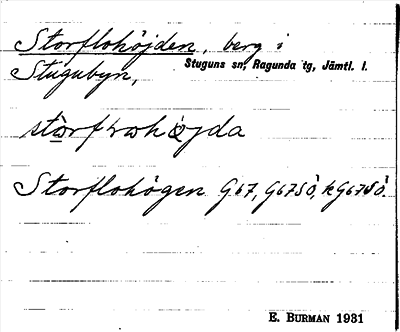 Storflohöjden, berg i
Stuguns sn, Ragunda tg, Jämtl. l.
Stugubyn,
Storflohögen G67, G67SÖ, kG67SÖ.
E. BURMAN 1931